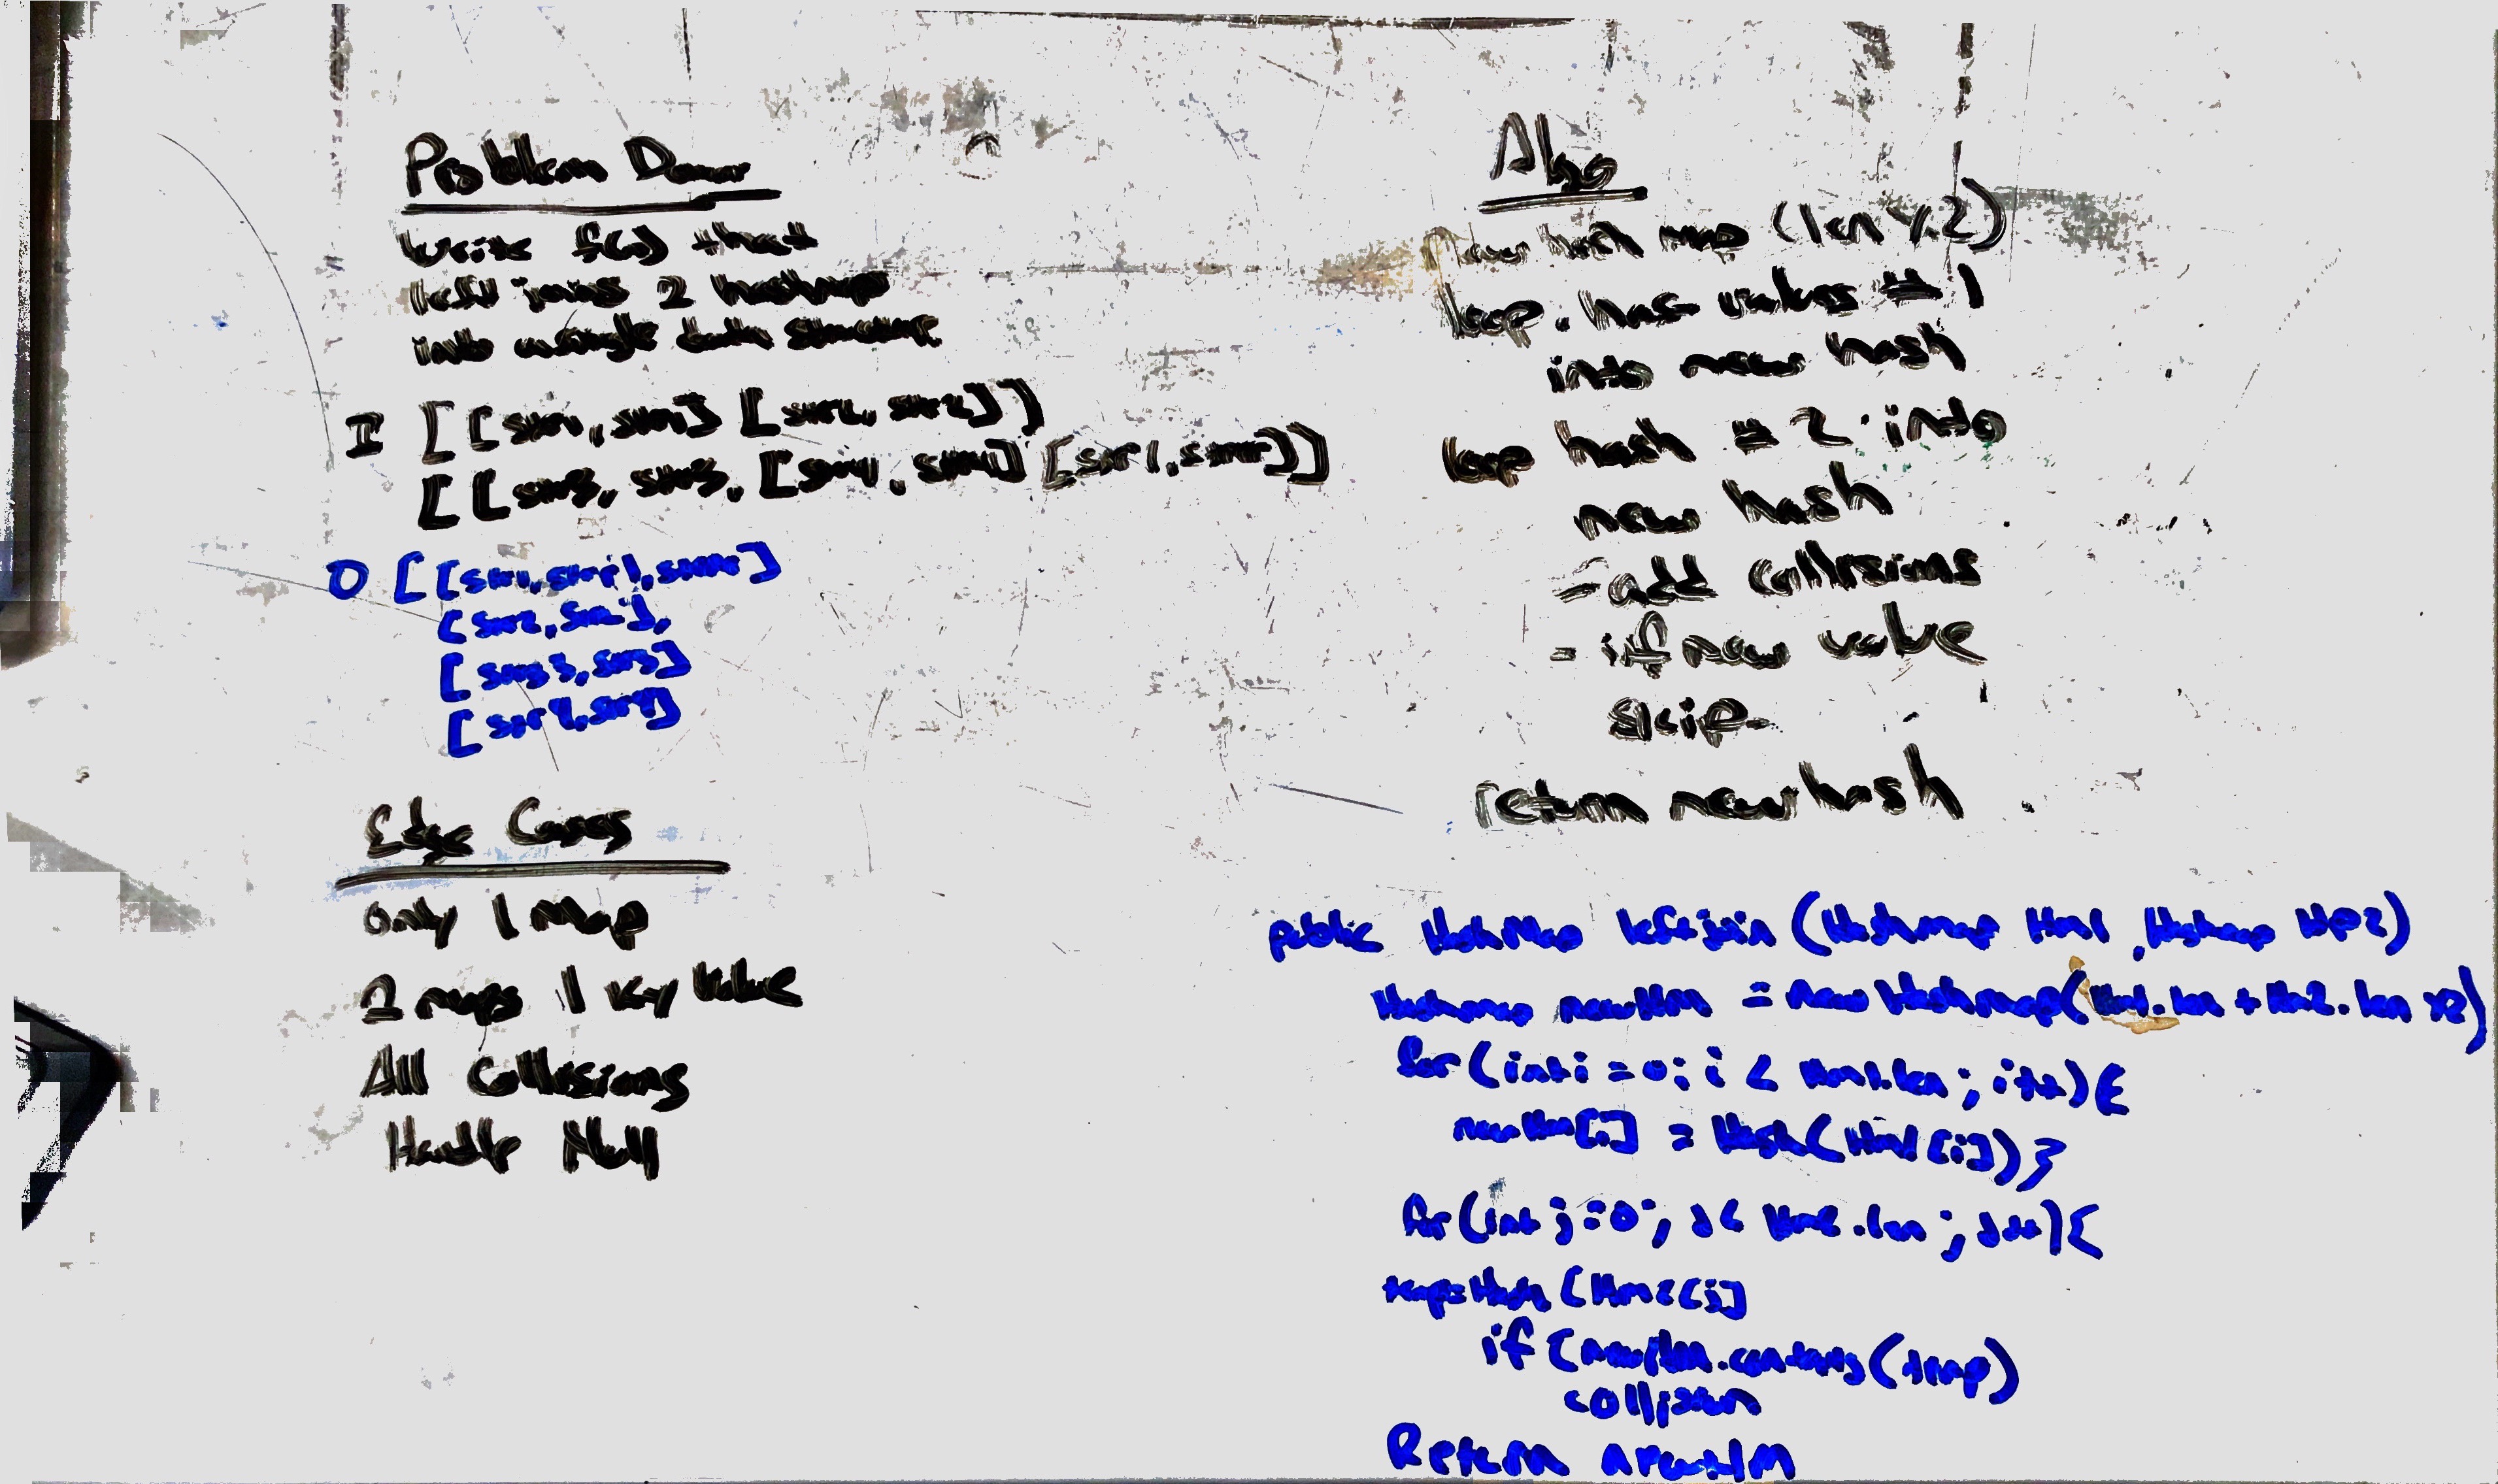 Problem Dom
Write f(x) that
left joins 2 hashmaps
into a single data structure
I [[str1, str1] [str2, str2]]
[[str3, str3, [str4, str4] [str1, str]]
O [[str1, str1, str]
[str2, str2],
[str3, str3]
[str
Edge Cases
Only 1 Map
2 maps 1 key value
All Collisions
Handle Null
Algo
New hash map (len x 2)
loop. has values # 1
into new hash
loop hash # 2 into
new hash
- add collisions
- if new value
skip.
return new hash
public HashMap leftjoin (Hashmap Hm1, Hashmap HP2)
Hashmap newHm = new Hashmap(Hm1.len + Hm2.len x2)
for (int i = 0; i < Hm1.len; i++) {
newHm[i] = Hash(Hm1[i]) }
for (int j = 0; j < Hm2.len; j++) {
temp = Hash (Hm2[j]
if (newHm.contains(temp)
collision
Return newHM